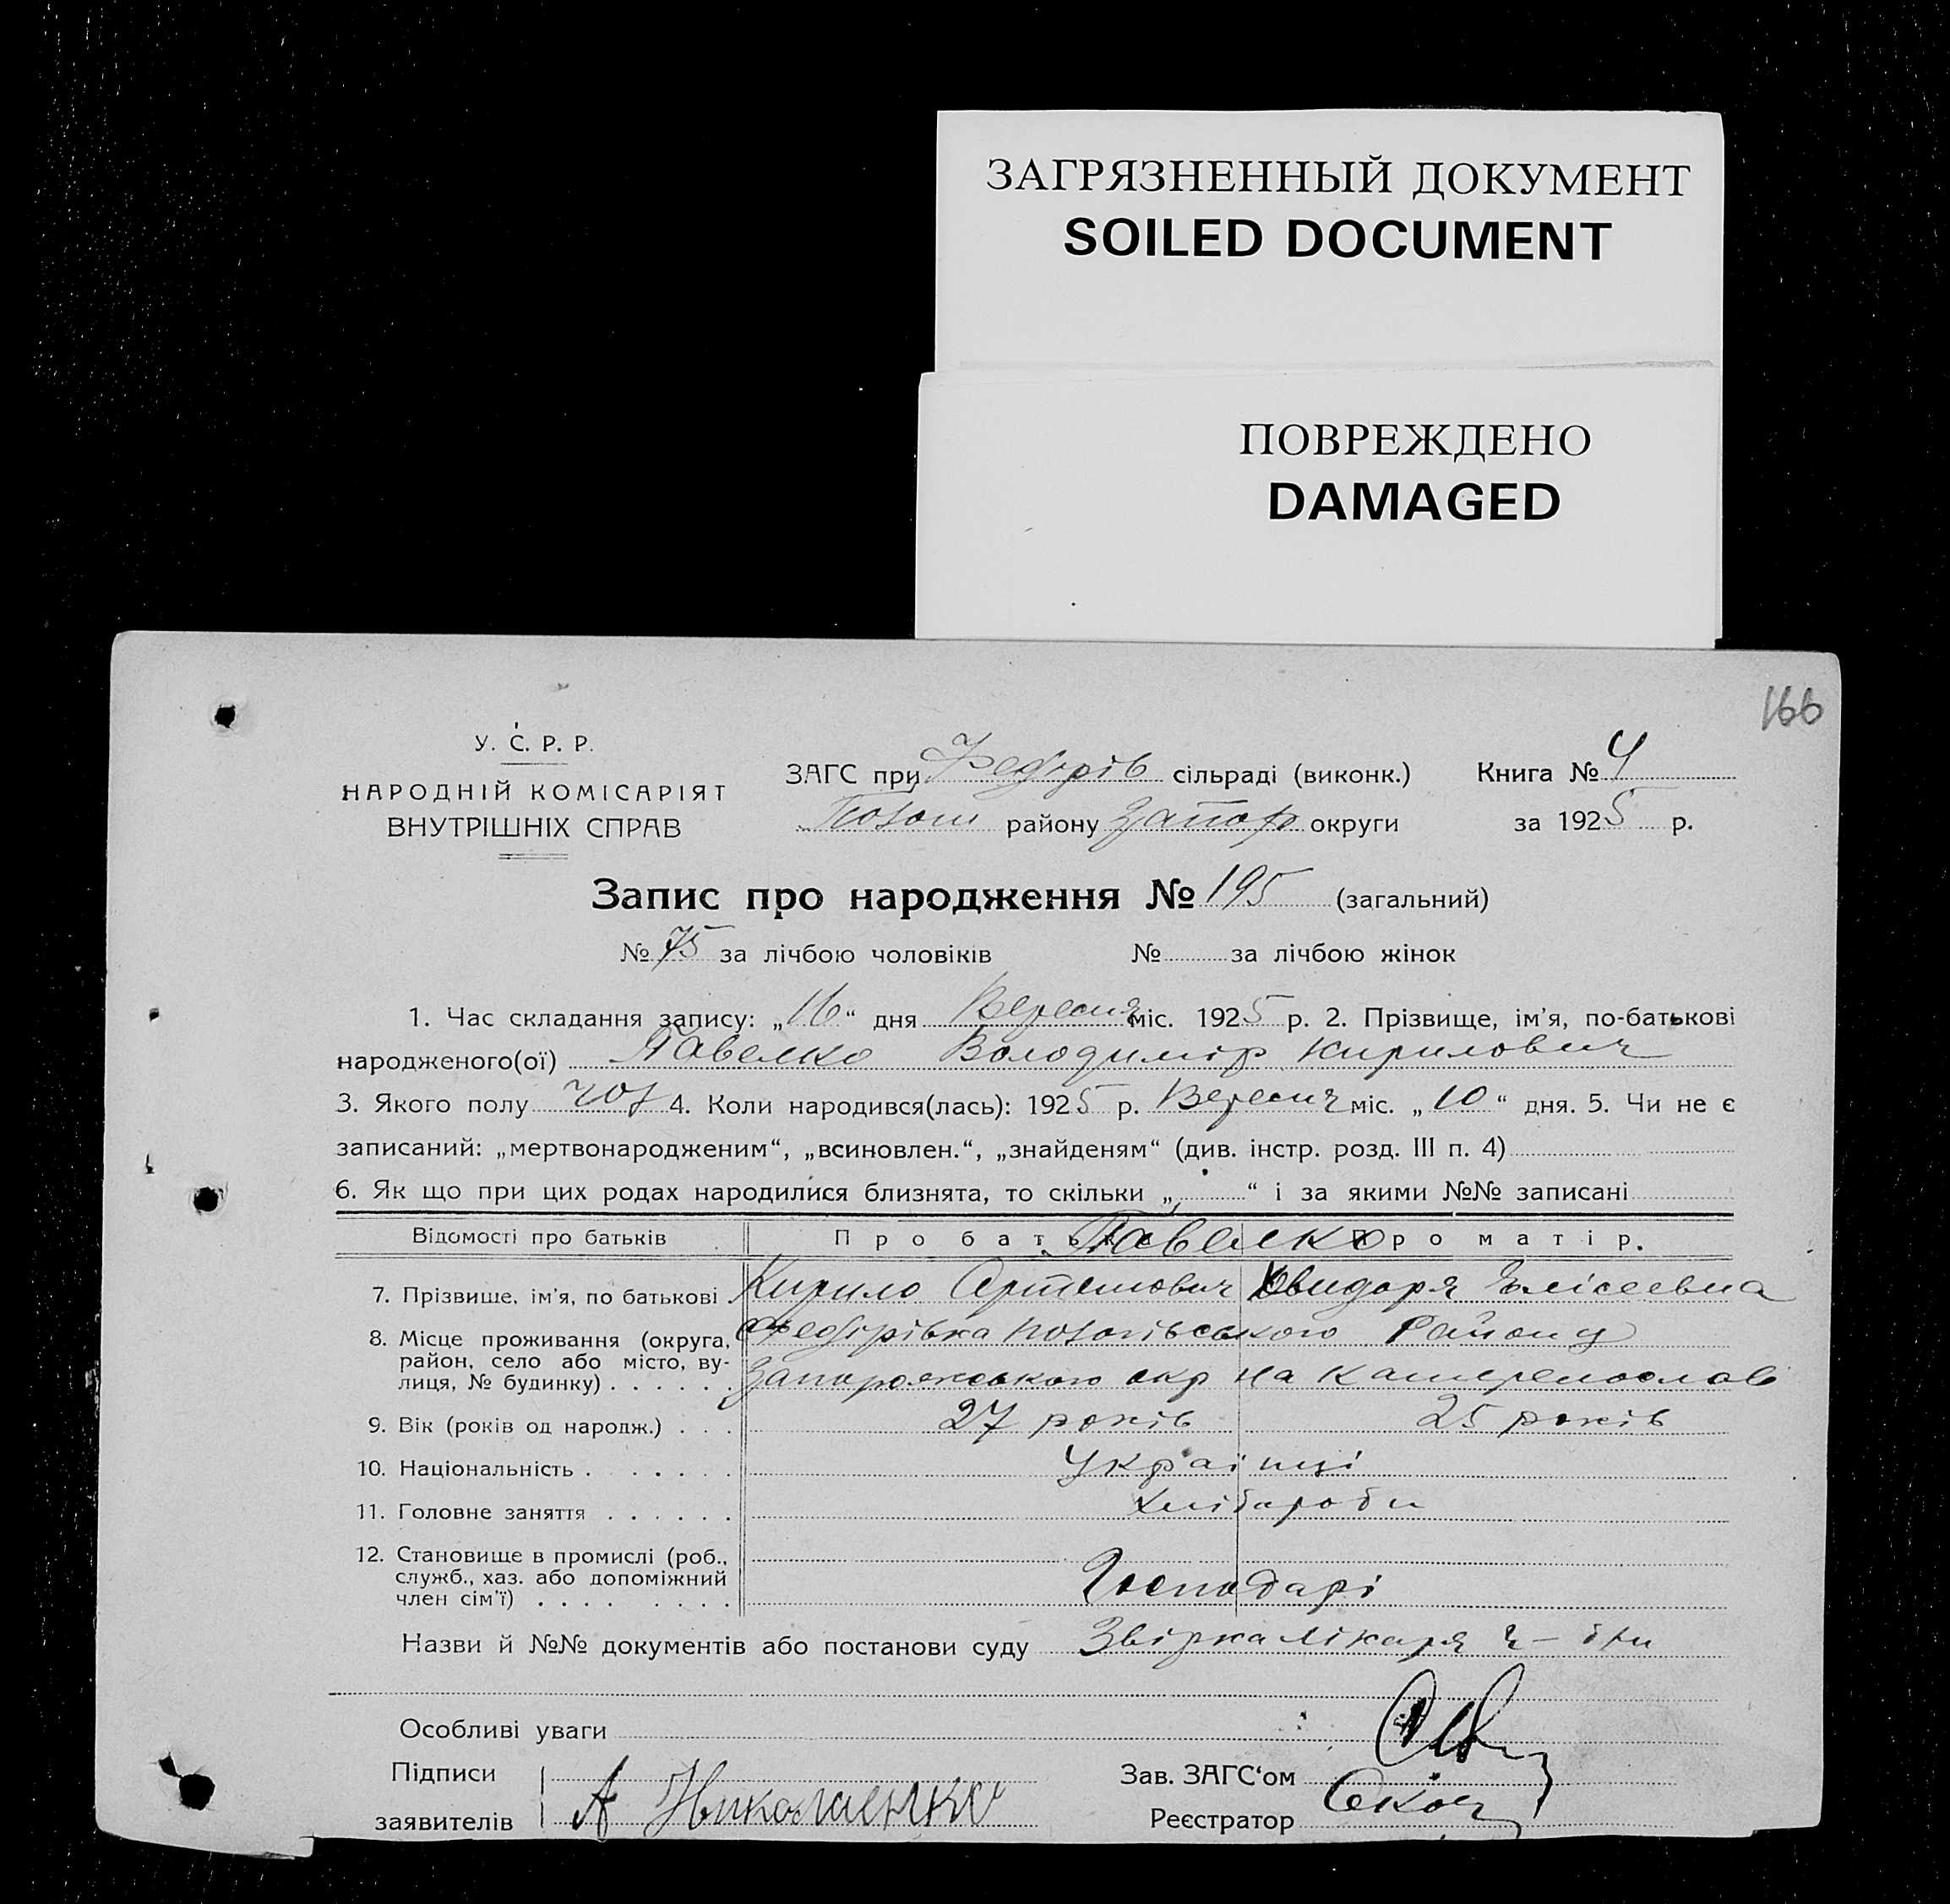 ЗАГРЯЗНЕННЫЙ ДОКУМЕНТ
SOILED DOCUMENT
ПОВРЕЖДЕНО
DAMAGED
166
У. С. Р. Р.
НАРОДНІЙ КОМІСАРІЯТ
ВНУТРІШНІХ СПРАВ
ЗАГС при Федорів сільраді (виконк.)
района Запор округи
Книга № 4
за 1925 р.
Запис про народження № 195 (загальний)
№ 75 за лічбою чоловіків № за лічбою жінок
1. Час складання запису: „16“ дня Вересня міс. 1925 р. 2. Прізвище, ім'я, по-батькові
народженого(ої) Павелко Володимір Кирилович
3. Якого полу чол 4. Коли народився(лась): 1925 р. Вересня міс. „10“ дня. 5. Чи не є
записаний: „мертвонародженим“, „всиновлен.“, „знайденям“ (див. інстр. розд. III п. 4)
6. Як що при цих родах народилися близнята, то скільки „ “ і за якими №№ записані
Відомості про батьків Про батька Павелко Про матір.
7. Прізвище, ім'я, по батькові Кирило Артемович Явидоря Єлісеевна
8. Місце проживання (округа, район, село або місто, вулиця, № будинку) Федорівка Района
Запорожського окр на
9. Вік (років од народж.) 27 років 25 років
10. Національність Українці
11. Головне заняття Хлібороби
12. Становище в промислі (роб., служб., хаз. або допоміжний член сім'ї) Господарі
Назви й №№ документів або постанови суду лікаря
Особливі уваги
Підписи
заявителів А Николаенко
Зав. ЗАГС'ом
Реєстратор